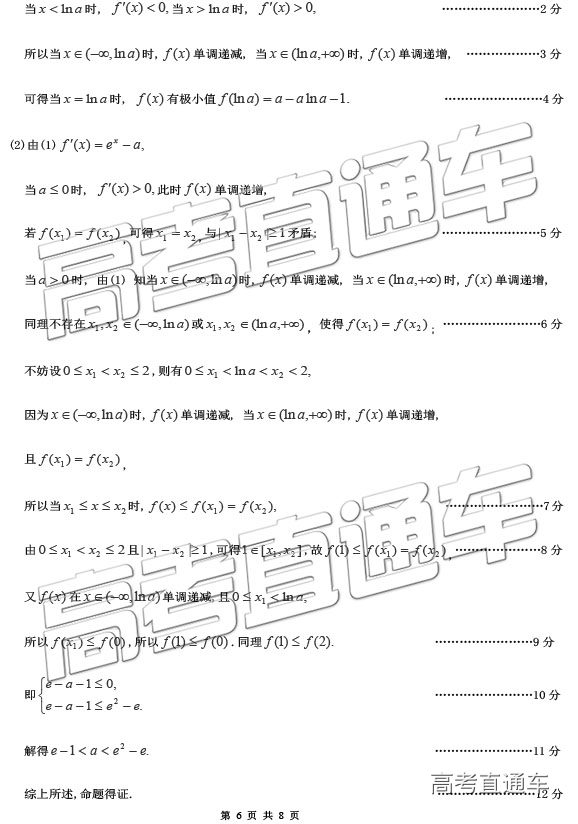 当 x < ln a 时, f′(x) < 0, 当 x > ln a 时, f′(x) > 0, ························2 分
所以当 x ∈ (−∞, ln a) 时, f(x) 单调递减, 当 x ∈ (ln a, +∞) 时, f(x) 单调递增, ··················3 分
可得当 x = ln a 时, f(x) 有极小值 f(ln a) = a − a ln a − 1. ························4 分
(2) 由 (1) f′(x) = eˣ − a,
当 a ≤ 0 时, f′(x) > 0, 此时 f(x) 单调递增,
若 f(x₁) = f(x₂), 可得 x₁ = x₂, 与 | x₁ − x₂ | ≥ 1 矛盾; ························5 分
当 a > 0 时, 由 (1) 知当 x ∈ (−∞, ln a) 时, f(x) 单调递减, 当 x ∈ (ln a, +∞) 时, f(x) 单调递增,
同理不存在 x₁, x₂ ∈ (−∞, ln a) 或 x₁, x₂ ∈ (ln a, +∞), 使得 f(x₁) = f(x₂); ························6 分
不妨设 0 ≤ x₁ < x₂ ≤ 2, 则有 0 ≤ x₁ < ln a < x₂ < 2,
因为 x ∈ (−∞, ln a) 时, f(x) 单调递减, 当 x ∈ (ln a, +∞) 时, f(x) 单调递增,
且 f(x₁) = f(x₂),
所以当 x₁ ≤ x ≤ x₂ 时, f(x) ≤ f(x₁) = f(x₂), ························7 分
由 0 ≤ x₁ < x₂ ≤ 2 且 | x₁ − x₂ | ≥ 1, 可得 1 ∈ [x₁, x₂], 故 f(1) ≤ f(x₁) = f(x₂), ·····················8 分
又 f(x) 在 x ∈ (−∞, ln a) 单调递减, 且 0 ≤ x₁ < ln a,
所以 f(x₁) ≤ f(0), 所以 f(1) ≤ f(0). 同理 f(1) ≤ f(2). ························9 分
即 { e − a − 1 ≤ 0,
e − a − 1 ≤ e² − e. ························10 分
解得 e − 1 < a < e² − e. ························11 分
综上所述, 命题得证. ························12 分
第 6 页 共 8 页
高考直通车
高考直通车
高考直通车